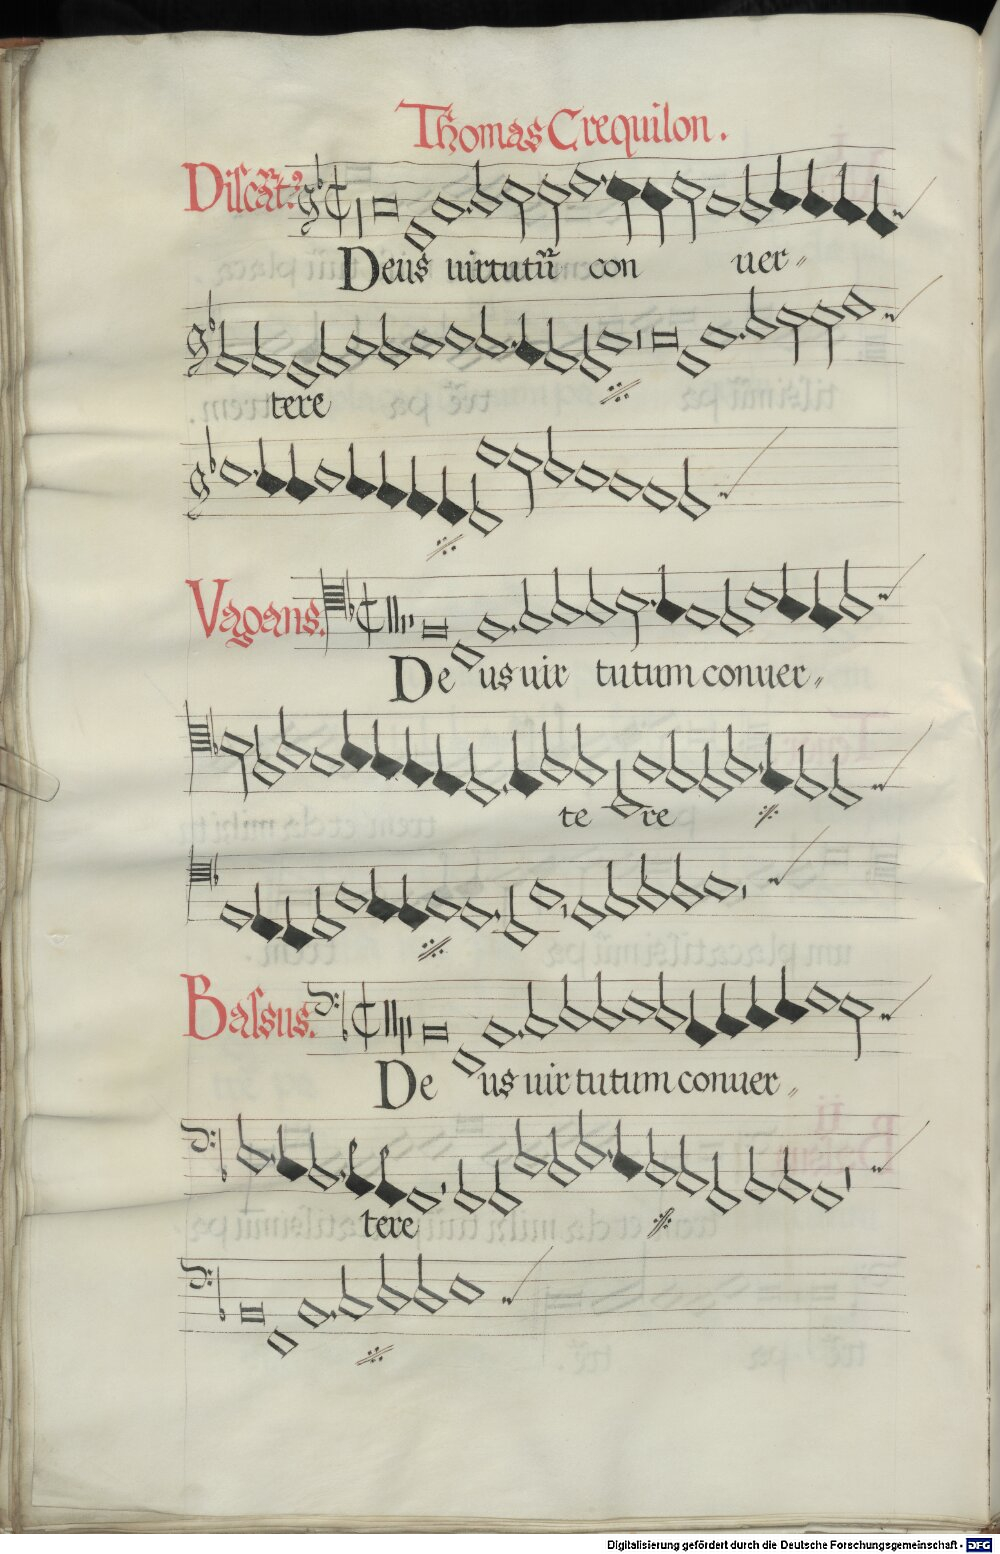 Thomas Crequilon.
Discant9
Deus uirtutũ con uer
tere
Vagans.
De us uir tutum conuer
te re
Bassus.
De us uir tutum conuer
tere
Digitalisierung gefördert durch die Deutsche Forschungsgemeinschaft - DFG